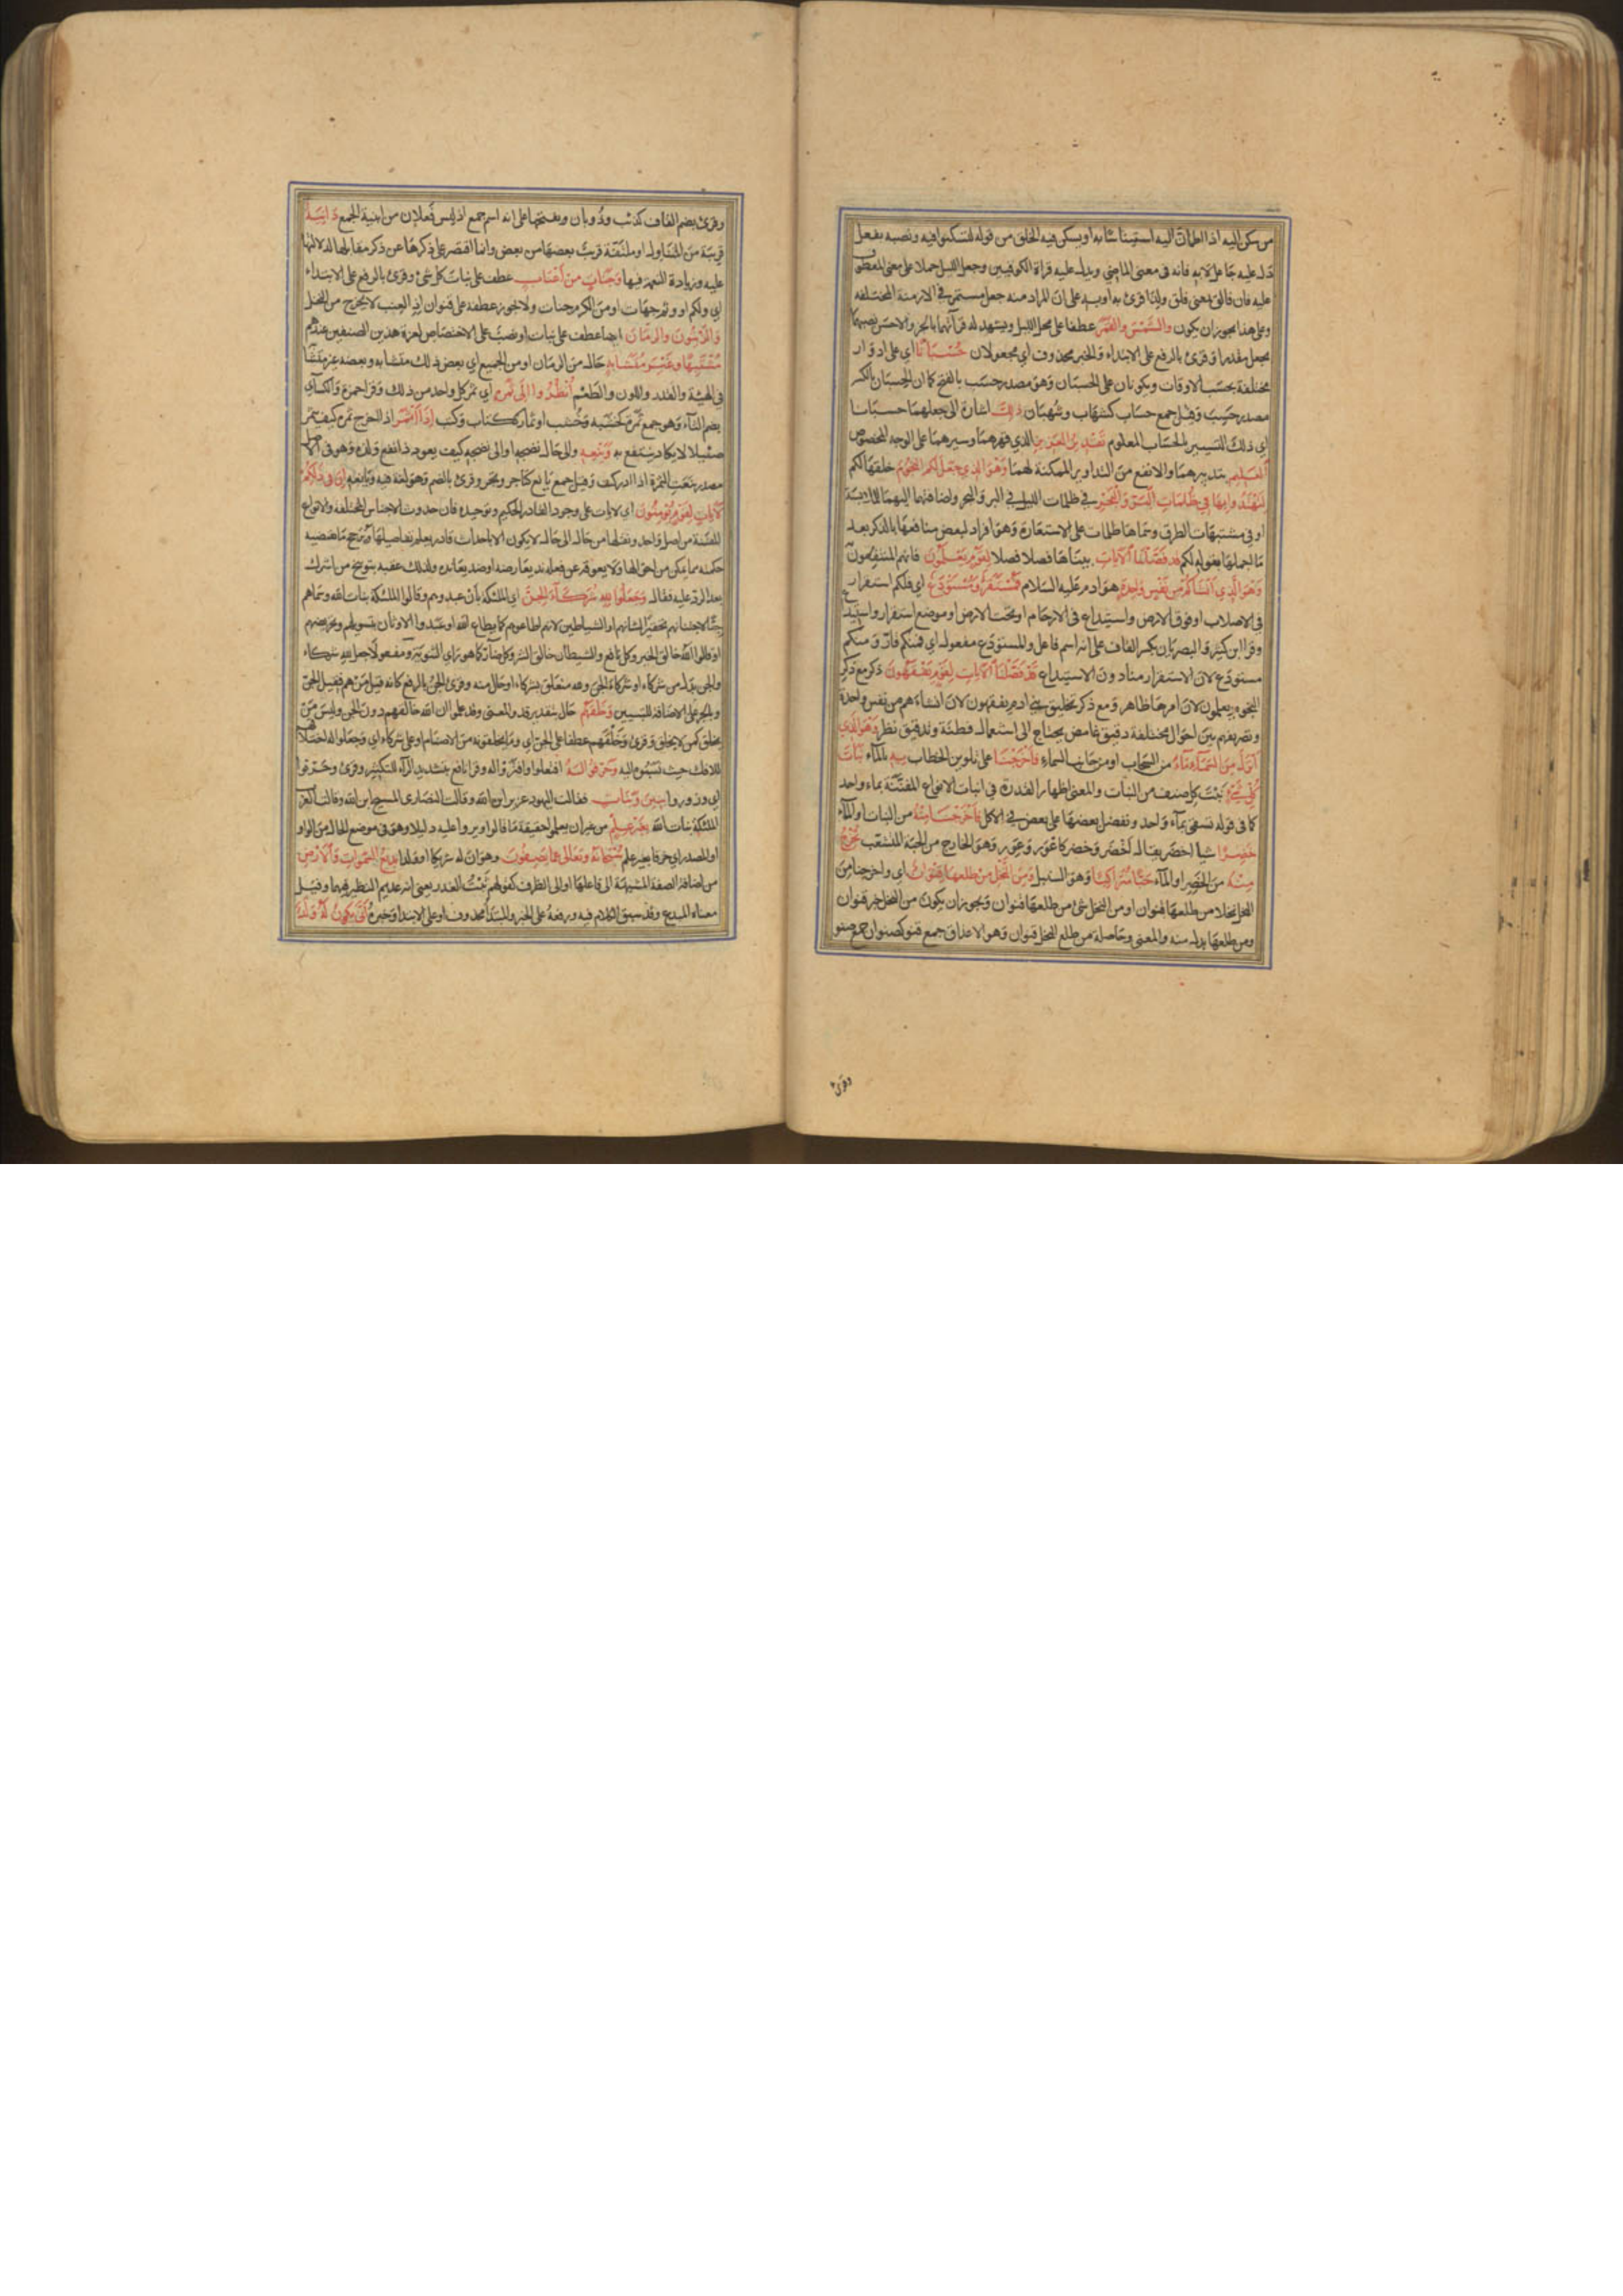 من سكن اليه اذا اطمأن اليه استيناسا به او يسكن فيه الخلق من قوله لتسكنوا فيه ونصبه بفعل
دل عليه جاعل لا به فانه في معنى الماضي ويدل عليه قراة الكوفيين وجعل الليل حملا على معنى المعطوف
عليه فان فالق بمعنى فلق ولذا قرئ به او به على ان المراد منه جعل مستمر في الازمنة المختلفة
وعلى هذا يجوز ان يكون والشمس والقمر عطفا على محل الليل ويشهد له قرآتهما بالجر والاحسن نصبهما
بجعل مقدرا وقرئ بالرفع على الابتداء والخبر محذوف اي مجعولان حسبانا اي على ادوار
مختلفة يحسب الاوقات ويكونان على الحسبان وهو مصدر حسب بالفتح كما ان الحسبان بالكسر
مصدر حسب وقيل جمع حساب كشهاب وشهبان ذلك اشارة الى جعلهما حسبانا
اي ذلك التسيير بالحساب المعلوم تقدير العزيز الذي قهرهما وسيرهما على الوجه المخصوص
العليم بتدبيرهما والانفع من التداوير الممكنة لهما وهو الذي جعل لكم النجوم خلقها لكم
لتهتدوا بها في ظلمات البر والبحر في ظلمات الليل في البر والبحر واضافتها اليهما للملابسة
او في مشتبهات الطرق وسماها ظلمات على الاستعارة وهو افراد لبعض منافعها بالذكر بعد
ما اجملها بقوله لكم قد فصلنا الآيات بيناها فصلا فصلا لقوم يعلمون فانهم المنتفعون
وهو الذي انشأكم من نفس واحدة هو ادم عليه السلام فمستقر ومستودع اي فلكم استقرار
في الاصلاب او فوق الارض واستيداع في الارحام او تحت الارض او موضع استقرار واستيداع
وقرا ابن كثير والبصريان بكسر القاف على انه اسم فاعل والمستودع مفعول اي فمنكم قار ومنكم
مستودع لان الاستقرار منا دون الاستيداع قد فصلنا الآيات لقوم يفقهون ذكر مع ذكر
النجوم يعلمون لان امرها ظاهر ومع ذكر تخليق بني ادم يفقهون لان انشاءهم من نفس واحدة
وتصريفهم بين احوال مختلفة دقيق غامض يحتاج الى استعمال فطنة وتدقيق نظر وهو الذي
انزل من السماء ماء من السحاب او من جانب السماء فاخرجنا على تلوين الخطاب به بالماء نبات
كل شيء نبت كل صنف من النبات والمعنى اظهار القدرة في انبات الانواع المفتنة بماء واحد
كما في قوله تسقى بماء واحد ونفضل بعضها على بعض في الاكل فاخرجنا منه من النبات او الماء
خضرا شيا اخضر يقال اخضر وخضر كاعور وعور وهو الخارج من الحبة المتشعب نخرج
منه من الخضر او الماء حبا متراكبا وهو السنبل ومن النخل من طلعها قنوان اي واخرجنا من
النخل نخلا من طلعها قنوان او من النخل شئ من طلعها قنوان ويجوز ان يكون من النخل خبر قنوان
ومن طلعها بدل منه والمعنى وحاصلة من طلع النخل قنوان وهو الاعذاق جمع قنو كصنوان جمع صنو
وقرئ
وقرئ بضم القاف كذئب وذوبان وبفتحها على انه اسم جمع اذ ليس فعلان من ابنية الجمع دانية
قريبة من المتناول او ملتفة قريب بعضها من بعض وانما اقتصر على ذكرها عن ذكر مقابلها لدلالتها
عليه وزيادة النعمة فيها وجنات من اعناب عطف على نبات كل شئ وقرئ بالرفع على الابتداء
اي ولكم او وثم جنات او من الكرم جنات ولا يجوز عطفه على قنوان اذ العنب لا يخرج من النخل
والزيتون والرمان ايضا عطف على نبات او نصب على الاختصاص لعزة هذين الصنفين عندهم
مشتبها وغير متشابه حال من الرمان او من الجميع اي بعض ذلك متشابه وبعضه غير متشابه
في الهيئة والقدر واللون والطعم انظروا الى ثمره اي ثمر كل واحد من ذلك وقرا حمزة والكسآي
بضم الثآء وهو جمع ثمرة كخشبة وخشب او ثمار ككتاب وكتب اذا اثمر اذا اخرج ثمره كيف يثمر
ضئيلا لا يكاد ينتفع به وينعه والى حال نضجه او الى نضيجه كيف يعود ذا نفع ولذة وهو في الاصل
مصدر ينعت الثمرة اذا ادركت وقيل جمع يانع كتاجر وتجر وقرئ بالضم وهو لغة فيه ويانعه ان في ذلكم
لآيات لقوم يؤمنون اي لايات على وجود القادر الحكيم وتوحيده فان حدوث الاجناس المختلفة والانواع
المفتنة من اصل واحد ونقلها من حال الى حال لا يكون الا باحداث قادر يعلم تفاصيلها ويرجح ما تقتضيه
حكمته مما يمكن من احوالها ولا يعوقه عن فعله ند يعارضه او ضد يعانده ولذلك عقبه بتوبيخ من اشرك
به والرد عليه فقال وجعلوا لله شركآء الجن اي الملئكة بان عبدوهم وقالوا الملئكة بنات الله وسماهم
جنا لاجتنانهم تحقيرا لشانهم او الشياطين لانهم اطاعوهم كما يطاع الله او عبدوا الاوثان بتسويلهم وتحريضهم
او قالوا الله خالق الخير وكل نافع والشيطان خالق الشر وكل ضار كما هو راي الثنوية ومفعولا جعل لله شركاء
والجن بدل من شركاء او شركاء الجن ولله متعلق بشركاء او حال منه وقرئ الجن بالرفع كانه قيل من هم فقيل الجن
وبالجر على الاضافة للتبيين وخلقهم حال بتقدير قد والمعنى وقد علموا ان الله خالقهم دون الجن وليس من
يخلق كمن لا يخلق وقرئ وخلقهم عطفا على الجن اي وما يخلقونه من الاصنام او على شركاء اي وجعلوا له اختلاقهم
للافك حيث نسبوه اليه وخرقوا له افتعلوا وافتروا له وقرا نافع بتشديد الرآء للتكثير وقرئ وحرفوا
اي وزوروا بنين وبنات فقالت اليهود عزير ابن الله وقالت النصارى المسيح ابن الله وقالت العرب
الملئكة بنات الله بغير علم من غير ان يعلموا حقيقة ما قالوا ويروا عليه دليلا وهو في موضع الحال من الواو
او المصدر اي خرقا بغير علم سبحانه وتعالى عما يصفون وهو ان له شريكا او ولدا بديع السموات والارض
من اضافة الصفة المشبهة الى فاعلها او الى الظرف كقولهم ثبت الغدر بمعنى انه عديم النظير فيهما وقيل
معناه المبدع وقد سبق الكلام فيه ورفعه على الخبر والمبتدأ محذوف او على الابتدا وخبره انى يكون له ولد